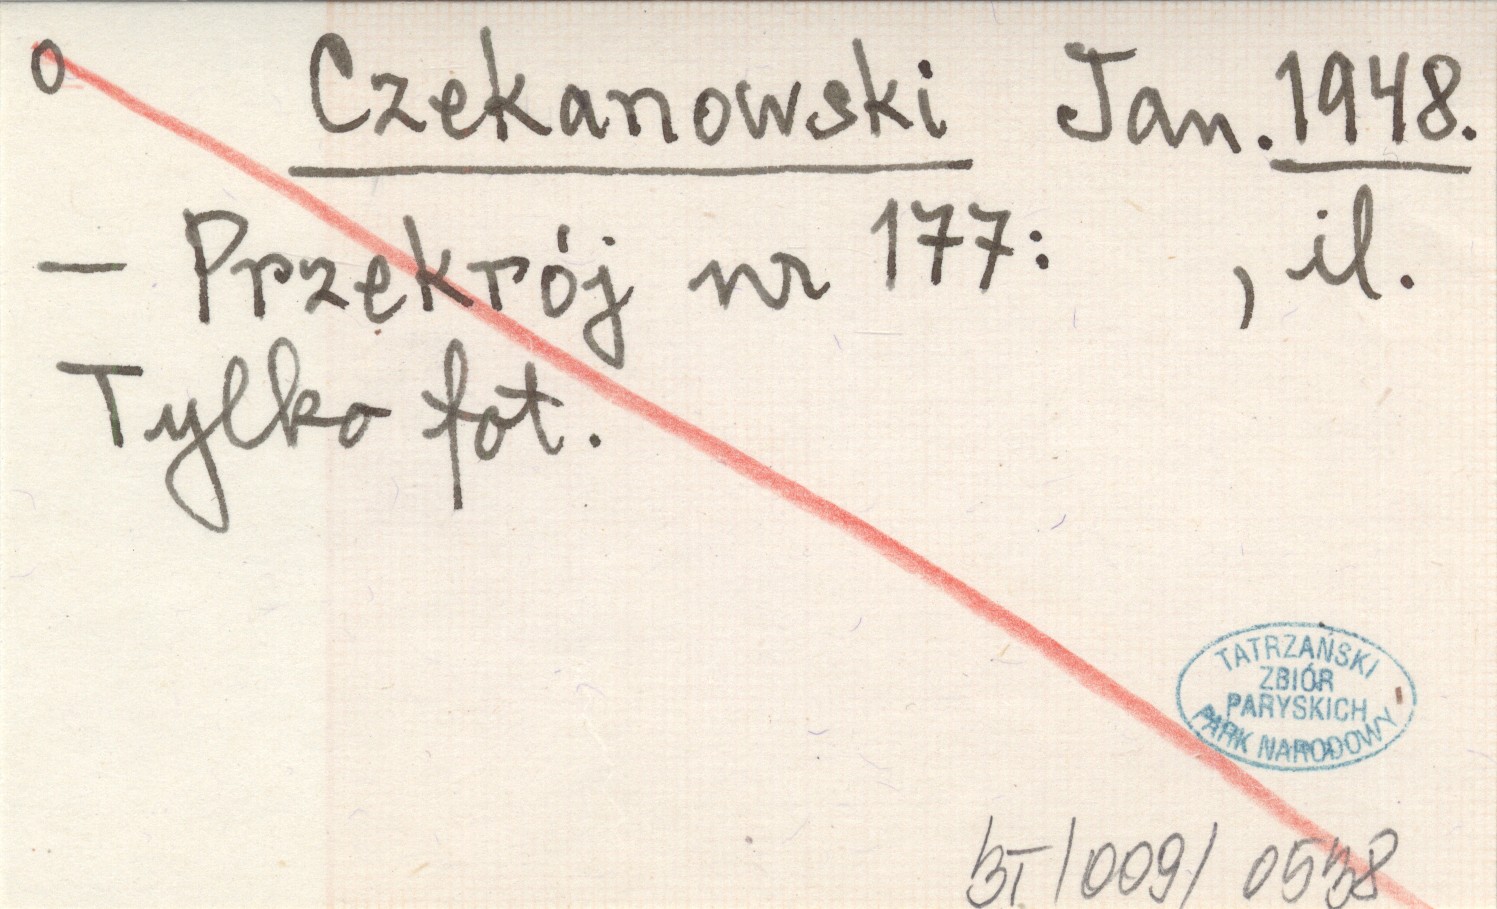 o Czekanowski Jan. 1948.
— Przekrój nr 177: , il.
Tylko fot.
TATRZAŃSKI
ZBIÓR
PARYSKICH
PARK NARODOWY
/009/ 0538